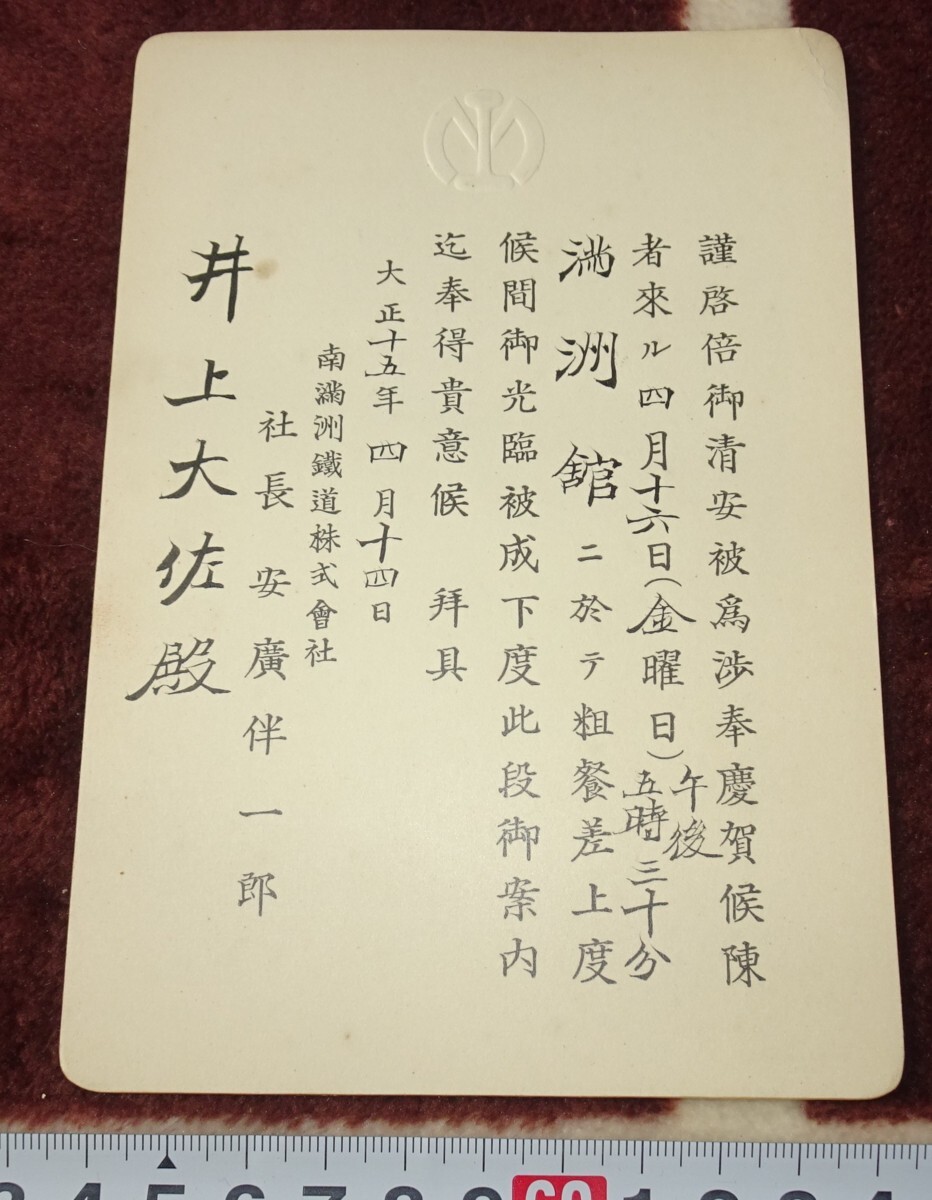 謹啓倍御清安被爲渉奉慶賀候陳
者來ル四月十六日(金曜日)午後五時三十分
満洲館ニ於テ粗餐差上度
候間御光臨被成下度此段御案内
迄奉得貴意候 拜具
大正十五年四月十四日
南滿洲鐵道株式會社
社長 安廣伴一郎
井上大佐殿
3 4 5 6 7 8 9 60 1 2 3 4